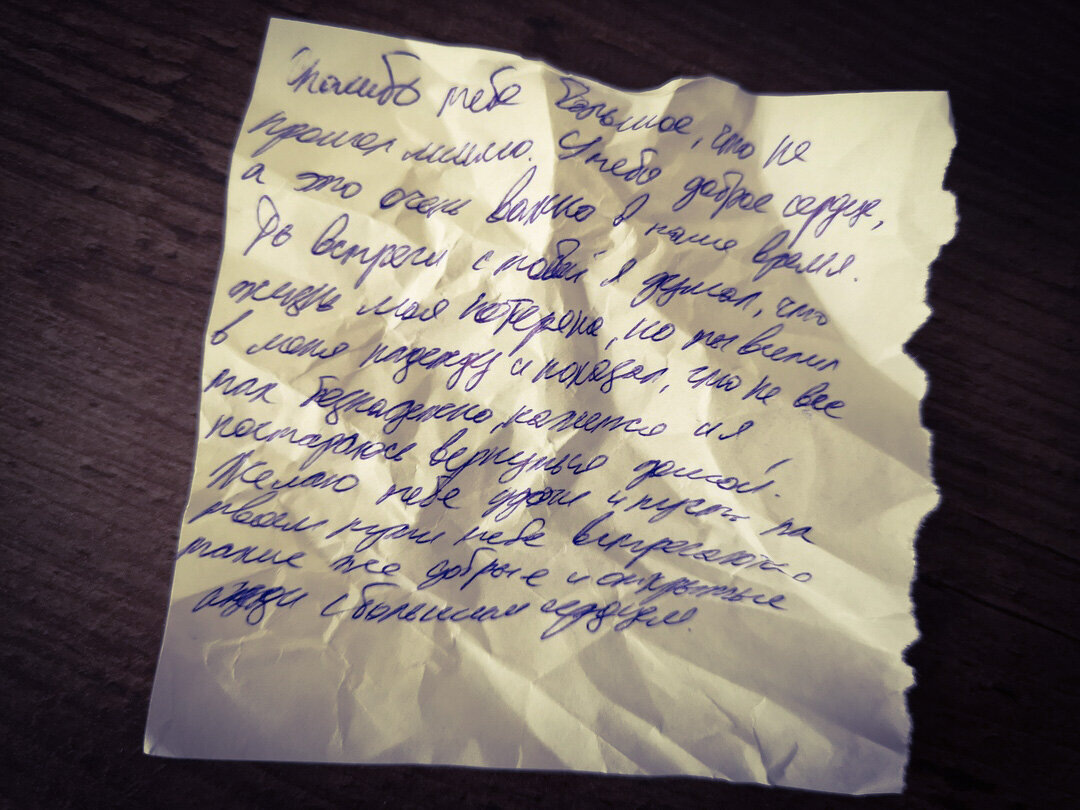 Спасибо тебе большое, что не
прошел мимо. У тебя доброе сердце,
а это очень важно в наше время.
До встречи с тобой я думал, что
жизнь моя потеряна, но ты вселил
в меня надежду и показал, что не все
так безнадежно, кажется и я
постараюсь вернуться домой.
Желаю тебе удачи и пусть на
твоем пути тебе встречаются
такие же добрые и открытые
люди с большим сердцем.